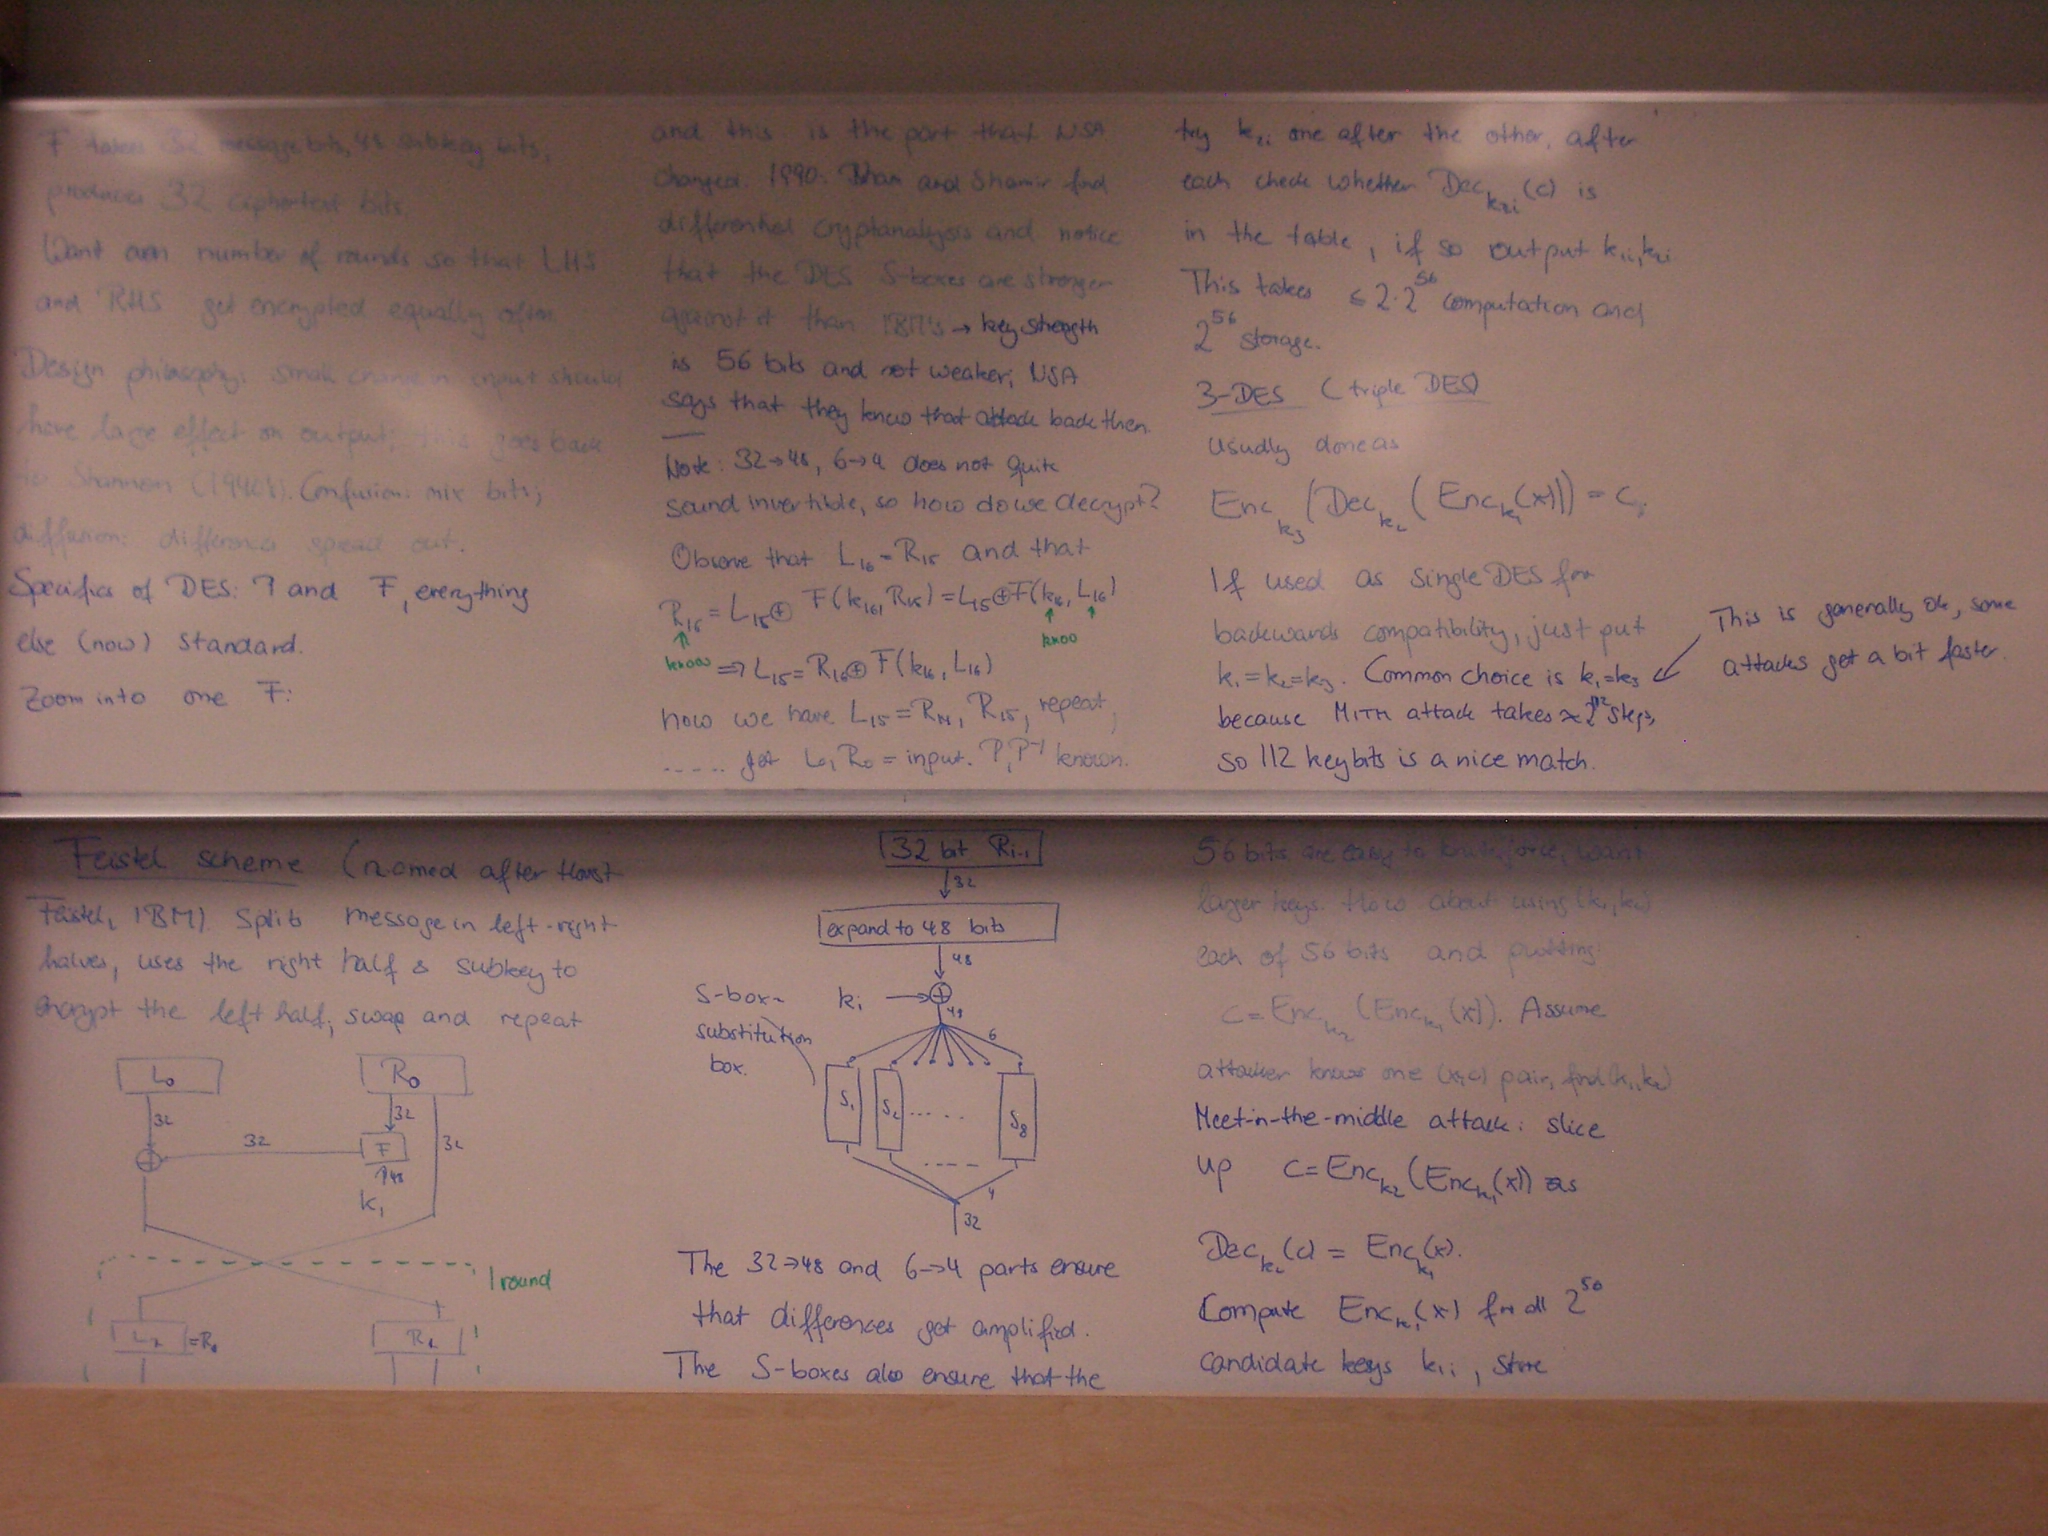 F takes 32 message bits, 48 subkey bits,
produces 32 ciphertext bits.
Want even number of rounds so that LHS
and RHS get encrypted equally often
Design philosophy: small change in input should
have large effect on output; this goes back
to Shannon (1940's). Confusion: mix bits;
diffusion: difference spread out.
Specifics of DES: P and F, everything
else (now) standard.
Zoom into one F:
and this is the part that NSA
changed. 1990: Biham and Shamir find
differential cryptanalysis and notice
that the DES S-boxes are stronger
against it than IBM's → key strength
is 56 bits and not weaker; NSA
says that they knew that attack back then.
Note: 32→48, 6→4 does not quite
sound invertible, so how do we decrypt?
Observe that L₁₆ = R₁₅ and that
R₁₆ = L₁₅ ⊕ F(k₁₆, R₁₅) = L₁₅ ⊕ F(k₁₆, L₁₆)
know
know
⇒ L₁₅ = R₁₆ ⊕ F(k₁₆, L₁₆)
now we have L₁₅ = R₁₄, R₁₅, repeat,
..... get L₀, R₀ = input. P, P⁻¹ known.
try k₂ᵢ one after the other, after
each check whether Dec_k₂ᵢ(c) is
in the table, if so output k₁ᵢ, k₂ᵢ
This takes ≤ 2·2⁵⁶ computation and
2⁵⁶ storage.
3-DES (triple DES)
usually done as
Enc_k₃(Dec_k₂(Enc_k₁(x))) = c,
If used as single DES for
backwards compatibility, just put
k₁=k₂=k₃. Common choice is k₁=k₃
because MITM attack takes ≈2¹¹² steps,
so 112 key bits is a nice match.
This is generally ok, some
attacks get a bit faster.
Feistel scheme (named after Horst
Feistel, IBM). Split message in left-right
halves, uses the right half & subkey to
encrypt the left half; swap and repeat
L₀
R₀
32
32
32
32
F
↑48
k₁
1 round
L₁
=R₀
R₁
32 bit Rᵢ₋₁
32
expand to 48 bits
48
kᵢ → ⊕
48
6
S-box -
substitution
box.
S₁ S₂ ..... S₈
-----
4
32
The 32→48 and 6→4 parts ensure
that differences get amplified.
The S-boxes also ensure that the
56 bits are easy to bruteforce, want
larger keys. How about using (k₁,k₂)
each of 56 bits and putting
c = Enc_k₂(Enc_k₁(x)). Assume
attacker knows one (x,c) pair, find (k₁,k₂)
Meet-in-the-middle attack: slice
up c = Enc_k₂(Enc_k₁(x)) as
Dec_k₂(c) = Enc_k₁(x).
Compute Enc_k₁(x) for all 2⁵⁶
candidate keys k₁ᵢ, store